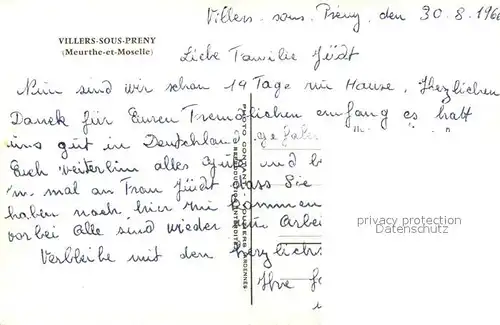 Villers-sous-Preny, den 30.8.196
VILLERS-SOUS-PRENY
(Meurthe-et-Moselle)
Liebe Familie Jüdt
Nun sind wir schon 14 Tage zu Hause, Herzlichen
Danck für Euren Freundlichen emfang es hatt
uns gut in Deutschlan gefalen
Euch weiterhin alles gute und
mal an Frau Jüdt dass Sie
haben nach hier zu kommen
vorbei Alle sind wieder zur Arbei
Verbleibe mit den herzlichs
Ihre
PHOTO COMBIER
REPRODUCTION INTERDITE
ARDENNES
privacy protection
Datenschutz